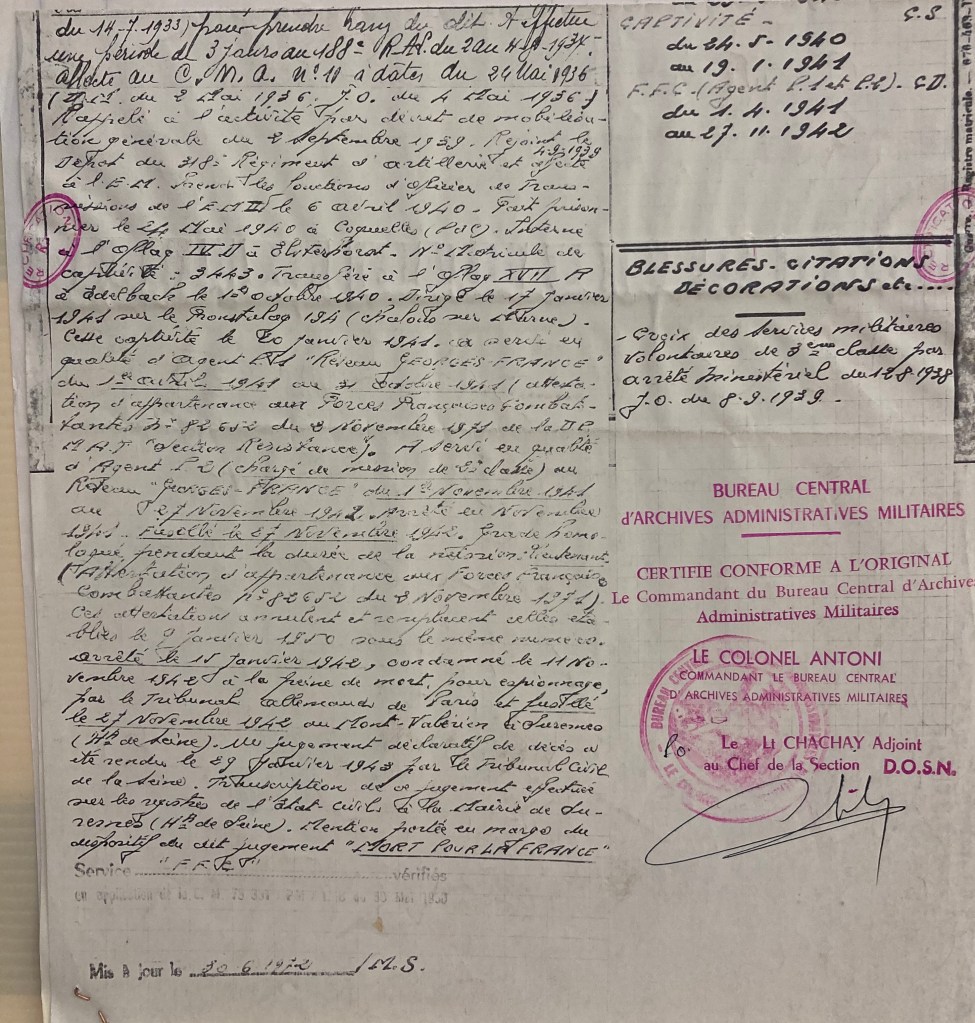 du 14-7-1933) pour prendre rang du dit. A effectué
une période de 3 jours au 188e R.A.L. du 2 au 4-1937.
affecté au C.M.A. N°18 à dater du 24 Mai 1936
(D.M. du 2 Mai 1936. J.O. du 4 Mai 1936)
Rappelé à l'activité par décret de mobilisa-
tion générale du 2 septembre 1939. Rejoint le
4-9-1939
Dépôt du 318e Régiment d'artillerie et affecté
à l'E.M. Prend les fonctions d'officier de Trans-
missions de l'E.M. le 6 avril 1940. Fait prison-
nier le 24 Mai 1940 à Coquelles (PdC). Interné
à l'Oflag IV.D à Elsterhorst. N° Matricule de
captivité : 3443. Transféré à l'Oflag XVII. A
à Edelbach le 1er octobre 1940. Dirigé le 17 Janvier
1941 sur le Fronstalag 194 (Chalons sur Marne).
Cesse captivité le 20 Janvier 1941. a servi en
qualité d'agent P1 "Réseau GEORGES-FRANCE"
du 1er avril 1941 au 31 octobre 1941 (attesta-
tion d'appartenance aux Forces Françaises Combat-
tantes N° 82652 du 8 Novembre 1971 de la
M.A.T "Section Résistance). A servi en qualité
d'Agent P2 (chargé de mission de 2e classe) au
Réseau "GEORGES-FRANCE" du 1er Novembre 1941
au 27 Novembre 1942. Arrêté en Novembre
1941. Fusillé le 27 Novembre 1942. Grade homo-
logué pendant la durée de la mission : Lieutenant
(Attestation d'appartenance aux Forces Françaises
Combattantes n° 82652 du 8 Novembre 1971).
Ces attestations annulent et remplacent celles éta-
blies le 9 Janvier 1950 sous le même numéro.
arrêté le 15 Janvier 1942, condamné le 11 No-
vembre 1942 à la peine de mort, pour espionnage,
par le Tribunal allemand de Paris et fusillé
le 27 Novembre 1942 au Mont-Valérien à Suresnes
(Hts de Seine). Un jugement déclaratif de décès a
été rendu le 29 Janvier 1943 par le Tribunal Civil
de la Seine. Transcription de ce jugement effectuée
sur les registres de l'Etat Civil à la Mairie de Su-
resnes (Hts de Seine). Mention portée en marge du
dispositif du dit jugement "MORT POUR LA FRANCE"
Service "F.F.C" vérifiés
en application de la C.M.
Mis à jour le 20 6 1972 /M.S.
CAPTIVITÉ - C.S.
du 24.5.1940
au 19.1.1941
F.F.C. (Agent P.1 et P.2). C.D.
du 1.4.1941
au 27.11.1942
Registre matricule.
BLESSURES-CITATIONS
DÉCORATIONS etc....
- Croix des Services militaires
volontaires de 3ème classe par
arrêté ministériel du 12.8.1938
J.O. du 8.9.1939 -
BUREAU CENTRAL
d'ARCHIVES ADMINISTRATIVES MILITAIRES
CERTIFIE CONFORME A L'ORIGINAL
Le Commandant du Bureau Central d'Archive
Administratives Militaires
LE COLONEL ANTONI
COMMANDANT LE BUREAU CENTRAL
D'ARCHIVES ADMINISTRATIVES MILITAIRES
Po. Le Lt CHACHAY Adjoint
au Chef de la Section D.O.S.N.
BUREAU CENTRAL